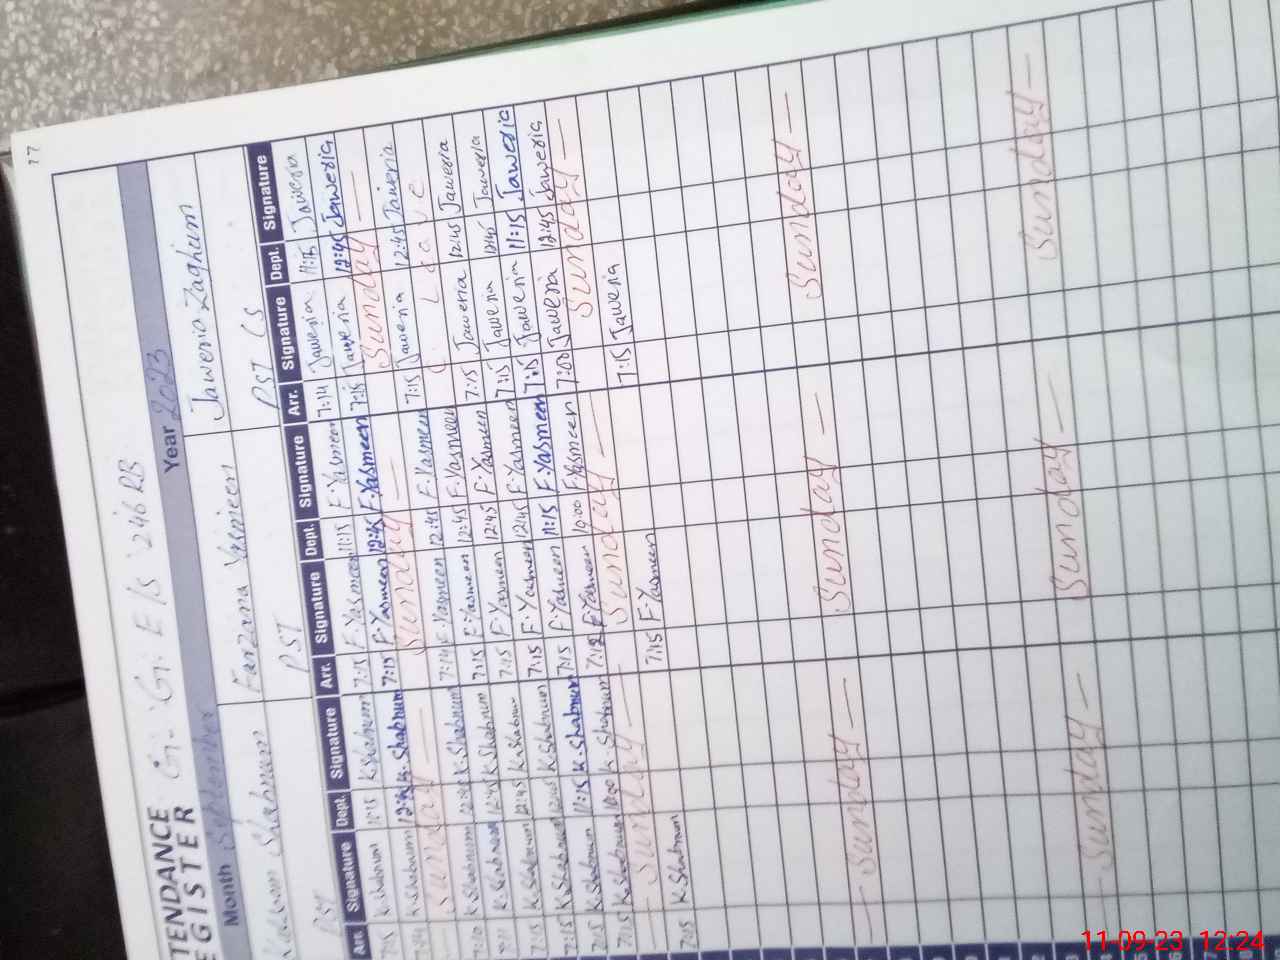 17
ATTENDANCE REGISTER G. G. E/S 246 RB
Month September Year 2023
Kalsoom Shabnum Farzana Yasmeen Jaweria Zaghum
PST PST PST CS
Arr. Signature Dept. Signature Arr. Signature Dept. Signature Arr. Signature Dept. Signature
7:15 K.Shabnum 11:15 K.Shabnum 7:15 F.Yasmeen 11:15 F.Yasmeen 7:14 Jaweria 11:15 Jaweria
K.Shabnum 12:45 K.Shabnum 7:15 F.Yasmeen 12:45 F.Yasmeen 7:15 Jaweria 12:45 Jaweria
Sunday Sunday Sunday
K.Shabnum 12:45 K.Shabnum 7:14 F.Yasmeen 12:45 F.Yasmeen 7:15 Jaweria 12:45 Jaweria
K.Shabnum 12:45 K.Shabnum 7:15 F.Yasmeen 12:45 F.Yasmeen Leave
7:15 K.Shabnum 12:45 K.Shabnum 7:15 F.Yasmeen 12:45 F.Yasmeen 7:15 Jaweria 12:45 Jaweria
7:15 K.Shabnum 12:45 K.Shabnum 7:15 F.Yasmeen 12:45 F.Yasmeen 7:15 Jaweria 12:45 Jaweria
7:15 K.Shabnum 11:15 K.Shabnum 7:15 F.Yasmeen 11:15 F.Yasmeen 7:15 Jaweria 11:15 Jaweria
7:15 K.Shabnum 10:00 K.Shabnum F.Yasmeen 10:00 F.Yasmeen 7:00 Jaweria 12:45 Jaweria
Sunday Sunday Sunday
7:15 K.Shabnum 7:15 F.Yasmeen 7:15 Jaweria
Sunday Sunday Sunday
Sunday Sunday Sunday
11-09-23 12:24